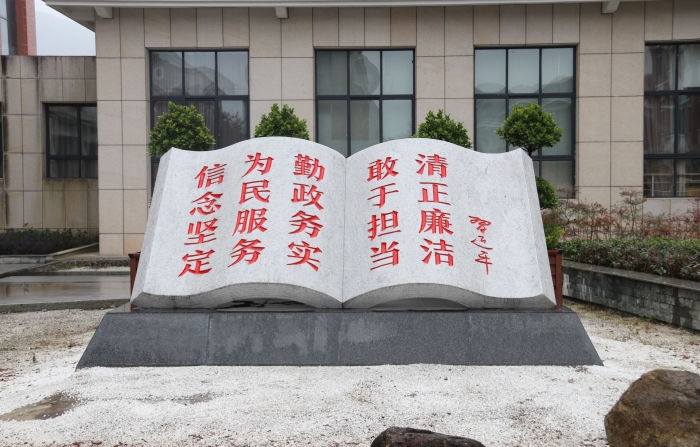 信念坚定
为民服务
勤政务实
敢于担当
清正廉洁